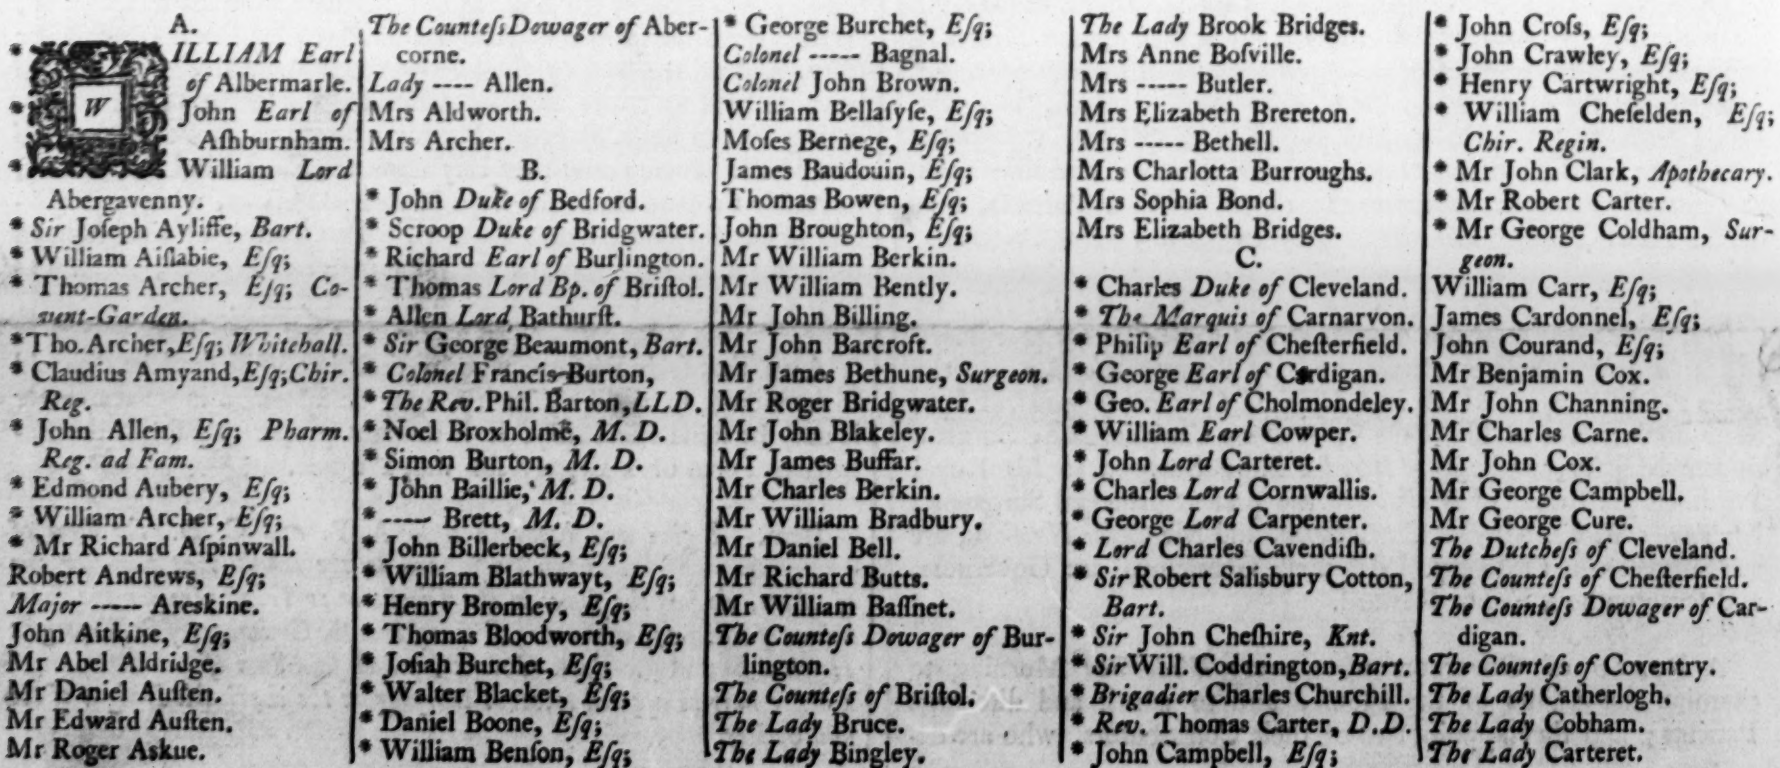 A.
* WILLIAM Earl
of Albermarle.
* John Earl of
Aſhburnham.
* William Lord
Abergavenny.
* Sir Joſeph Ayliffe, Bart.
* William Aiſlabie, Eſq;
* Thomas Archer, Eſq; Co-
vent-Garden.
* Tho. Archer, Eſq; Whitehall.
* Claudius Amyand, Eſq; Chir.
Reg.
* John Allen, Eſq; Pharm.
Reg. ad Fam.
* Edmond Aubery, Eſq;
* William Archer, Eſq;
* Mr Richard Aſpinwall.
Robert Andrews, Eſq;
Major ----- Areskine.
John Aitkine, Eſq;
Mr Abel Aldridge.
Mr Daniel Auſten.
Mr Edward Auſten.
Mr Roger Askue.
The Counteſs Dowager of Aber-
corne.
Lady ---- Allen.
Mrs Aldworth.
Mrs Archer.
B.
* John Duke of Bedford.
* Scroop Duke of Bridgwater.
* Richard Earl of Burlington.
* Thomas Lord Bp. of Briſtol.
* Allen Lord Bathurſt.
* Sir George Beaumont, Bart.
* Colonel Francis Burton,
* The Rev. Phil. Barton, LLD.
* Noel Broxholme, M. D.
* Simon Burton, M. D.
* John Baillie, M. D.
* ----- Brett, M. D.
* John Billerbeck, Eſq;
* William Blathwayt, Eſq;
* Henry Bromley, Eſq;
* Thomas Bloodworth, Eſq;
* Joſiah Burchet, Eſq;
* Walter Blacket, Eſq;
* Daniel Boone, Eſq;
* William Benſon, Eſq;
* George Burchet, Eſq;
Colonel ----- Bagnal.
Colonel John Brown.
William Bellaſyſe, Eſq;
Moſes Bernege, Eſq;
James Baudouin, Eſq;
Thomas Bowen, Eſq;
John Broughton, Eſq;
Mr William Berkin.
Mr William Bently.
Mr John Billing.
Mr John Barcroft.
Mr James Bethune, Surgeon.
Mr Roger Bridgwater.
Mr John Blakeley.
Mr James Buffar.
Mr Charles Berkin.
Mr William Bradbury.
Mr Daniel Bell.
Mr Richard Butts.
Mr William Baſſnet.
The Counteſs Dowager of Bur-
lington.
The Counteſs of Briſtol.
The Lady Bruce.
The Lady Bingley.
The Lady Brook Bridges.
Mrs Anne Boſville.
Mrs ----- Butler.
Mrs Elizabeth Brereton.
Mrs ----- Bethell.
Mrs Charlotta Burroughs.
Mrs Sophia Bond.
Mrs Elizabeth Bridges.
C.
* Charles Duke of Cleveland.
* The Marquis of Carnarvon.
* Philip Earl of Cheſterfield.
* George Earl of Cardigan.
* Geo. Earl of Cholmondeley.
* William Earl Cowper.
* John Lord Carteret.
* Charles Lord Cornwallis.
* George Lord Carpenter.
* Lord Charles Cavendiſh.
* Sir Robert Salisbury Cotton,
Bart.
* Sir John Cheſhire, Knt.
* Sir Will. Coddrington, Bart.
* Brigadier Charles Churchill.
* Rev. Thomas Carter, D.D.
* John Campbell, Eſq;
* John Croſs, Eſq;
* John Crawley, Eſq;
* Henry Cartwright, Eſq;
* William Cheſelden, Eſq;
Chir. Regin.
* Mr John Clark, Apothecary.
* Mr Robert Carter.
* Mr George Coldham, Sur-
geon.
William Carr, Eſq;
James Cardonnel, Eſq;
John Courand, Eſq;
Mr Benjamin Cox.
Mr John Channing.
Mr Charles Carne.
Mr John Cox.
Mr George Campbell.
Mr George Cure.
The Dutcheſs of Cleveland.
The Counteſs of Cheſterfield.
The Counteſs Dowager of Car-
digan.
The Counteſs of Coventry.
The Lady Catherlogh.
The Lady Cobham.
The Lady Carteret.